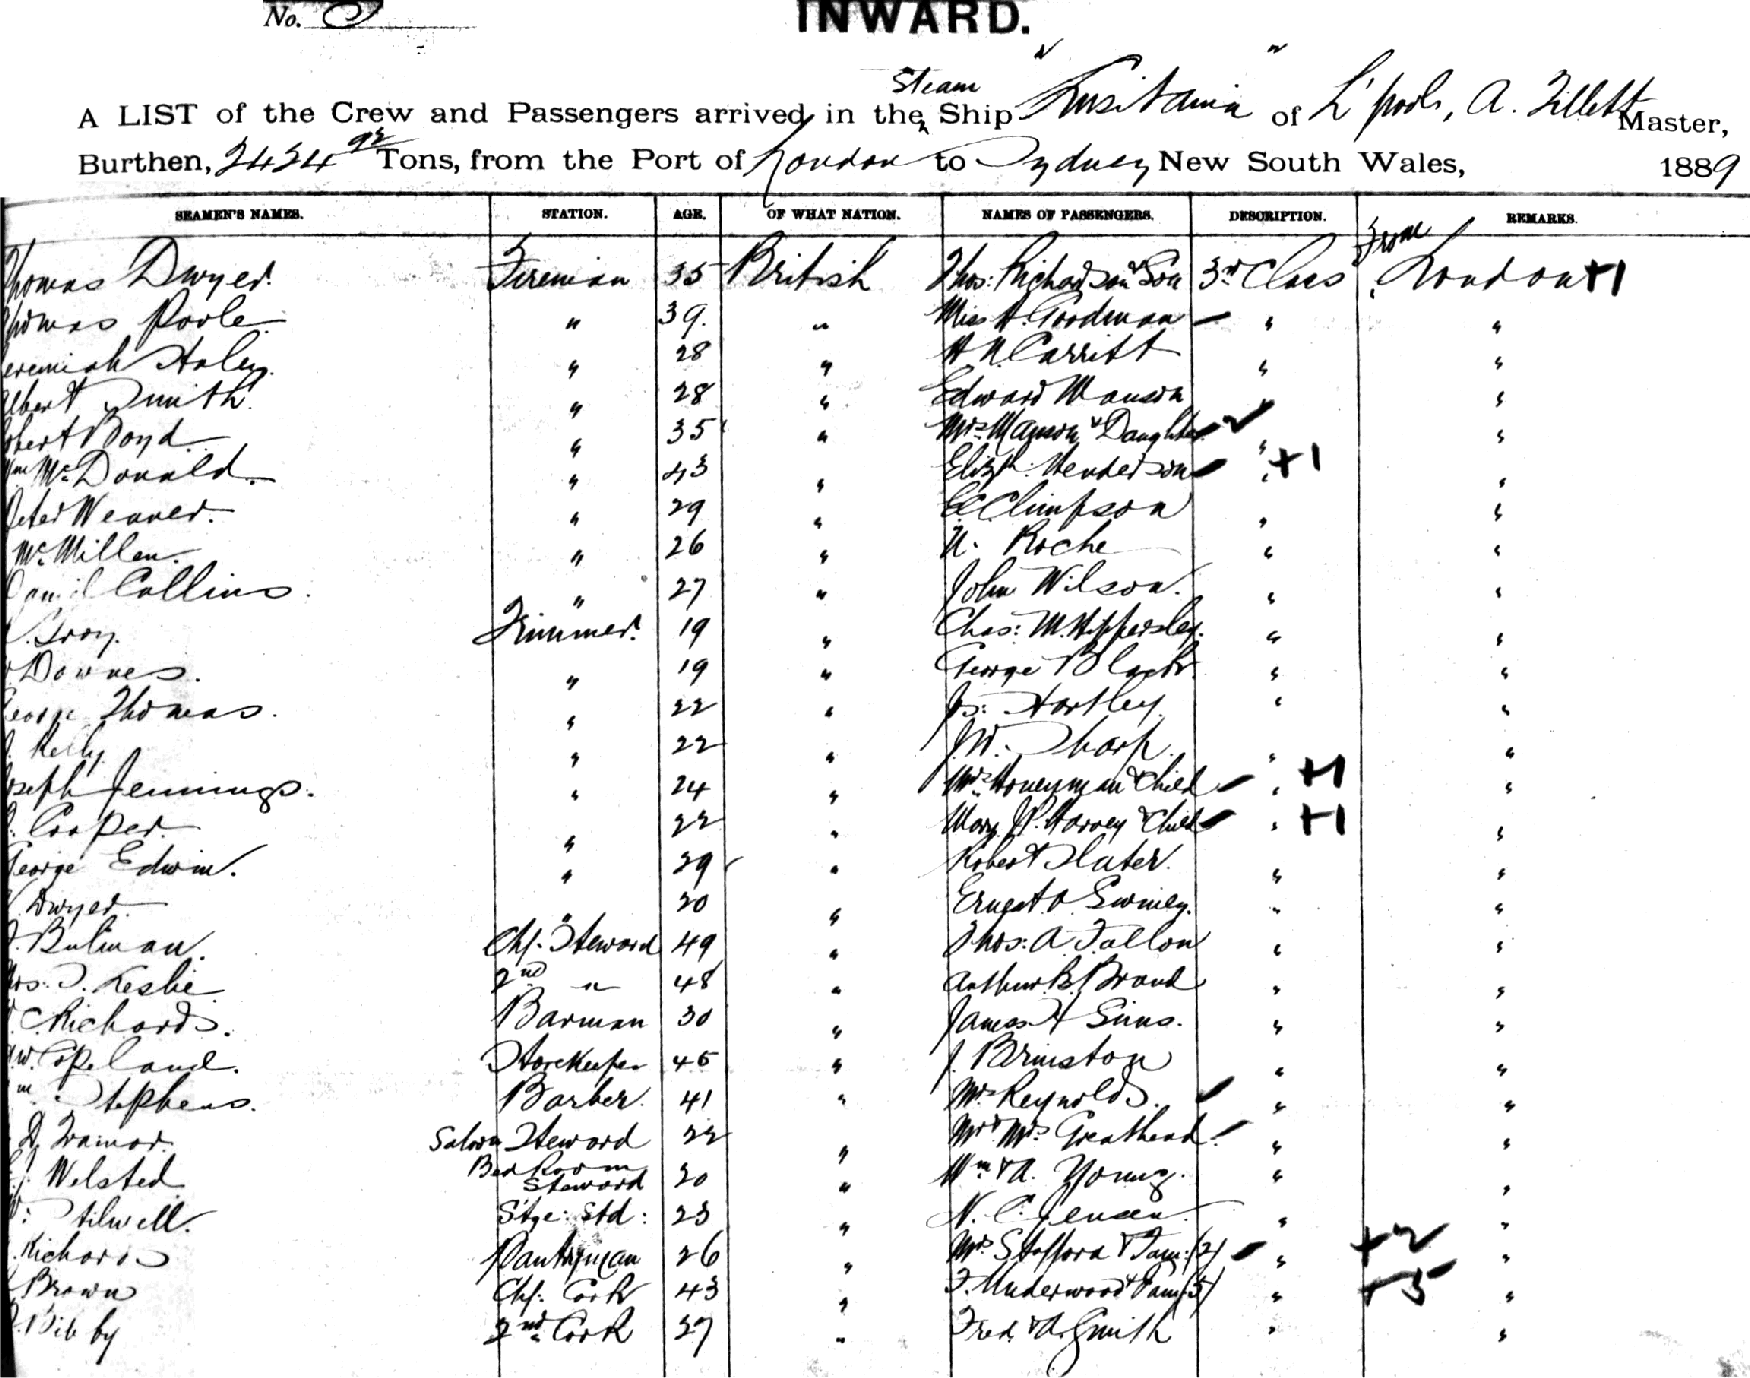 No.
INWARD.
A LIST of the Crew and Passengers arrived in the Steam Ship "Lusitania" of L'pool, A. Tillett Master,
Burthen, 2424 Tons, from the Port of London to Sydney New South Wales, 1889
SEAMEN'S NAMES. STATION. AGE. OF WHAT NATION. NAMES OF PASSENGERS. DESCRIPTION. REMARKS.
Thomas Dwyer. Fireman 35 British Thos: Richardson & Son 3rd Class From London +1
Thomas Poole " 39. " Miss H. Goodman " "
Jeremiah Haley. " 28 " H N Carritt " "
Albert Smith " 28 " Edward Manson " "
Robert Boyd " 35 " Mrs Manson & Daughter " "
Wm McDonald. " 43 " Elizth Henderson " +1 "
Peter Weaver. " 29 " E Climpson " "
McMillan. " 26 " Roche " "
Daniel Collins " 27 " John Wilson. " "
Troy. Trimmer. 19 " Chas: M. Hippersley. " "
Downes. " 19 " George Black " "
George Thomas. " 22 " Js: Hartley. " "
J. Kelly " 22 " J.W. Sharp. " "
Joseph Jennings. " 24 " Mrs Honeyman & Child " +1 "
J. Cooper. " 22 " Mary J P. Harvey & Child " +1 "
George Edwin. " 29 " Robert Slater. " "
Dwyer " 20 " Ernest O. Swiney. " "
Bulman. Chf. Steward 49 " Thos: A. Fallon " "
Leslie 2nd " 48 " Arthur B. Brand " "
C. Richards. Barman 30 " James H Sims. " "
Copeland. Storekeeper 45 " J. Brinston " "
Wm Stephens. Barber. 41 " Mrs Reynolds. " "
Trainor. Saloon Steward 22 " Mr & Mrs Greathead. " "
Welsted Bed Room Steward 20 " Wm & A. Young. " "
Stilwell. Stge: Std: 23 " N. C. Jensen " "
Richards Pantryman 26 " Mrs Stafford & Fam: (2) " +2 "
Brown Chf. Cook 43 " F. Underwood & Fam (5) " +5 "
Bibby 2nd Cook 27 " Fred. & A. Smith " "